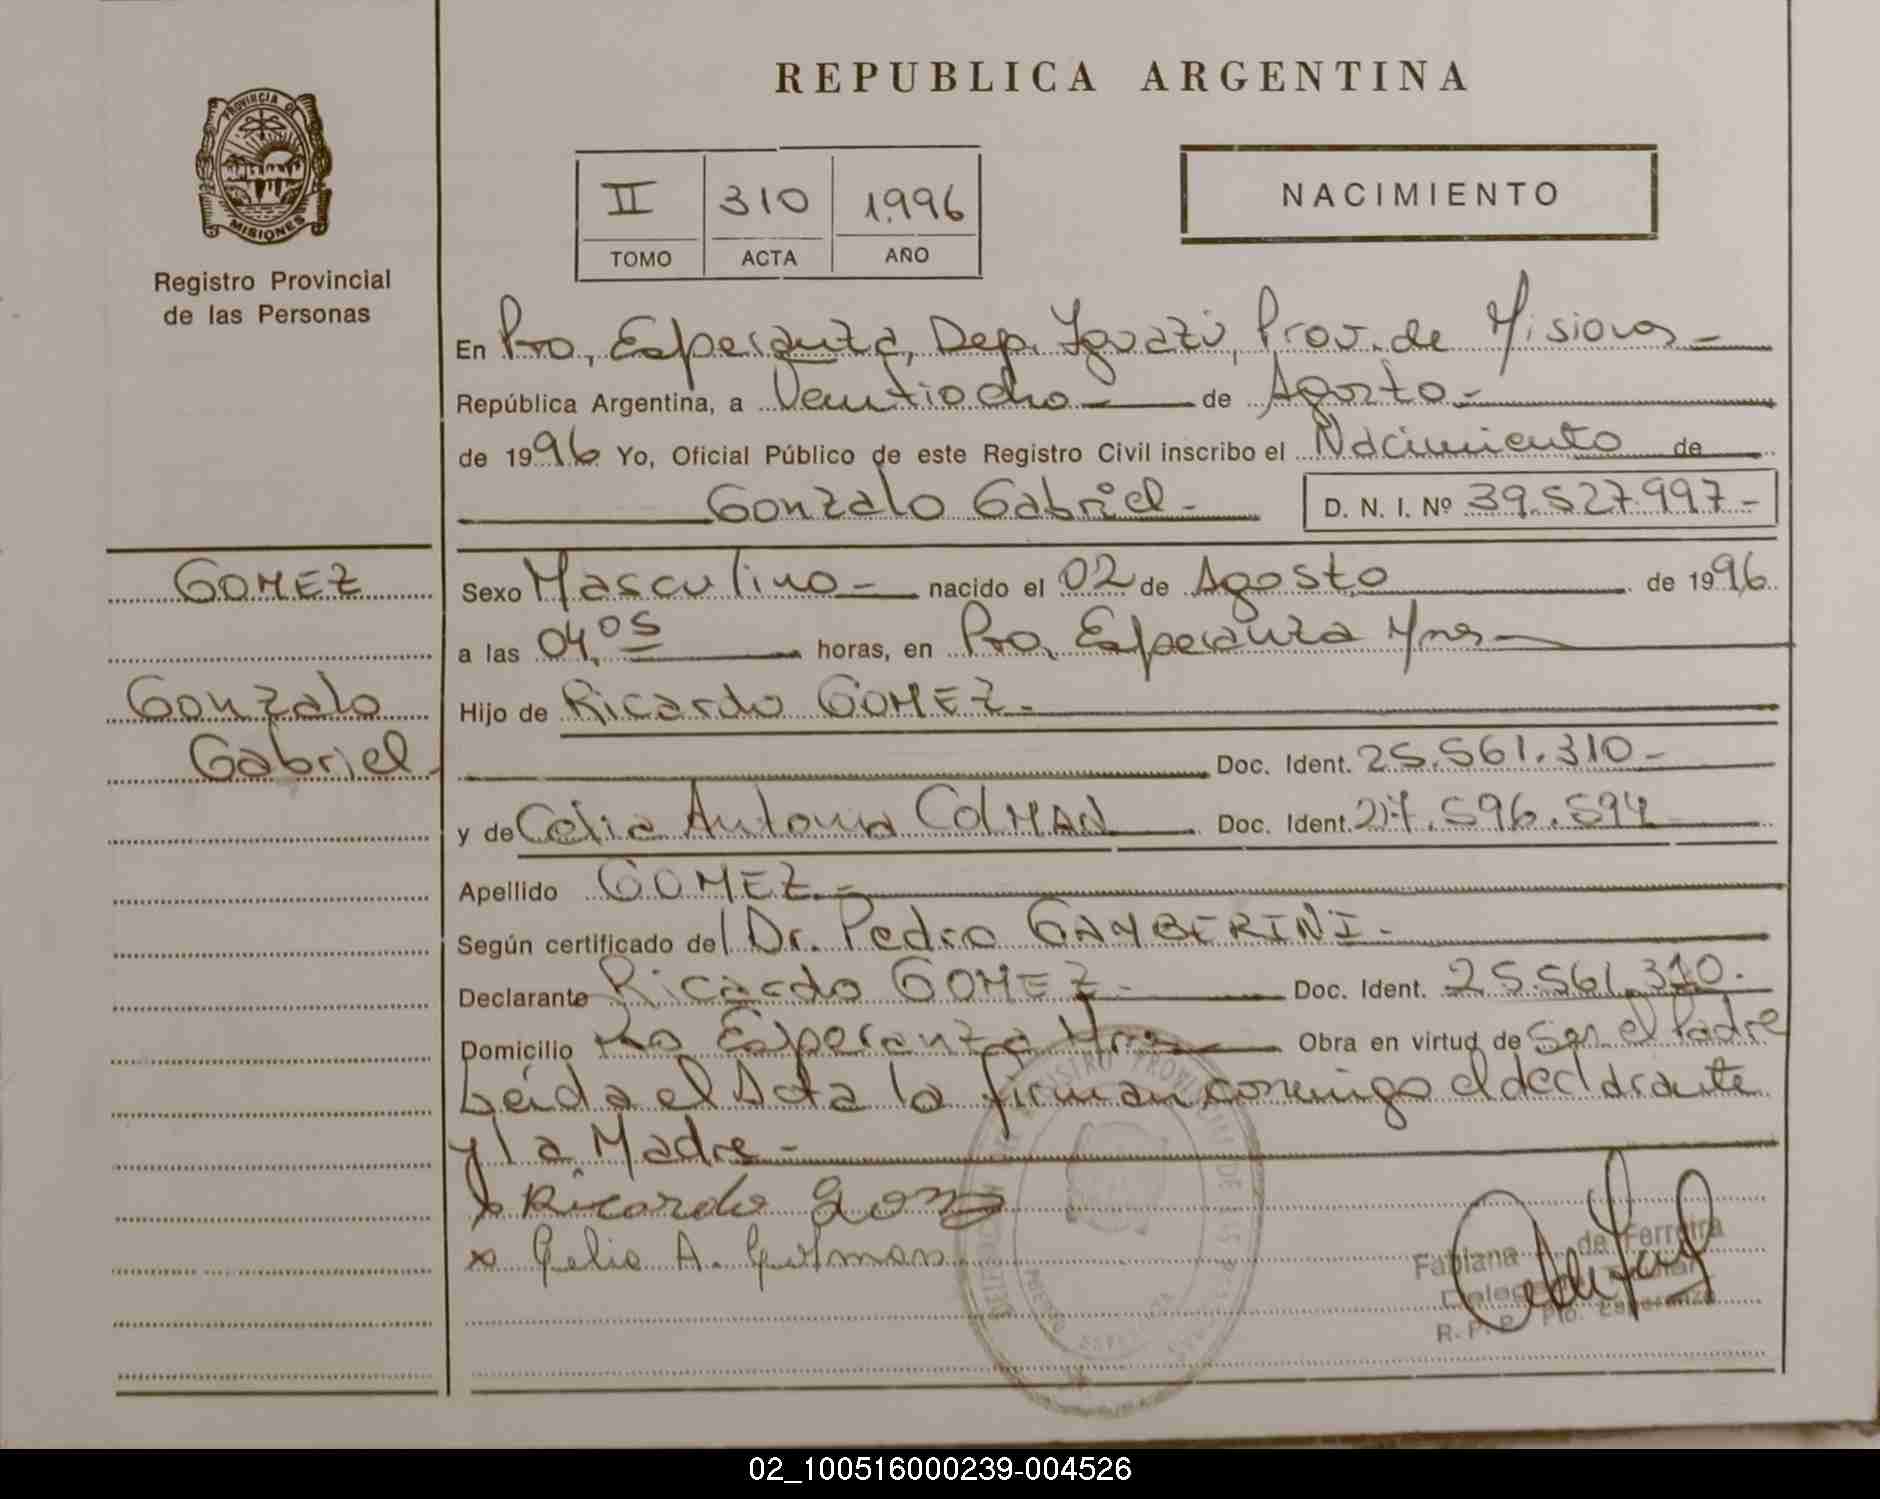 REPUBLICA ARGENTINA
PROVINCIA DE
MISIONES
Registro Provincial
de las Personas
II 310 1.996
TOMO ACTA AÑO
NACIMIENTO
En Pto, Esperanza, Dep. Iguazú, Prov. de Misiones -
República Argentina, a Veintiocho - de Agosto -
de 1996 Yo, Oficial Público de este Registro Civil inscribo el Nacimiento de
Gonzalo Gabriel - D. N. I. Nº 39.527.997 -
GOMEZ
Gonzalo
Gabriel -
Sexo Masculino - nacido el 02 de Agosto de 1996
a las 04,05 horas, en Pto, Esperanza Mnes -
Hijo de Ricardo GOMEZ -
Doc. Ident. 25.561.310 -
y de Celia Antonia COLMAN Doc. Ident. 27.596.594
Apellido GOMEZ -
Según certificado del Dr. Pedro GAMBERINI -
Declarante Ricardo GOMEZ - Doc. Ident. 25.561.310.
Domicilio Pto Esperanza Mnes Obra en virtud de Ser el Padre
Leída el Acta la firman conmigo el declarante
y la Madre -
x Ricardo Gomez
x Celia A.
Fabiana de Ferreira
R. P. P. Pto. Esperanza
02_100516000239-004526